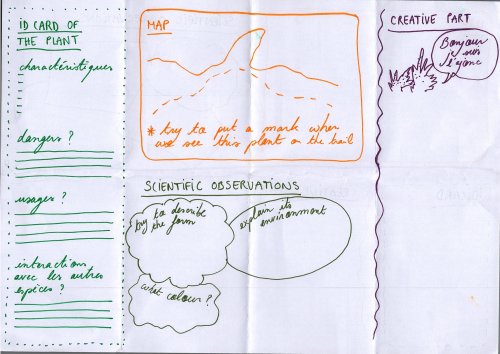 ID CARD OF
THE PLANT
charactéristiques
dangers ?
usages ?
interactions
avec les autres
espèces ?
MAP
* try to put a mark when
we see this plant on the trail
SCIENTIFIC OBSERVATIONS
try to describe
the form
explain its
environment
what colour ?
CREATIVE PART
Bonjour
je suis
l'ajonc